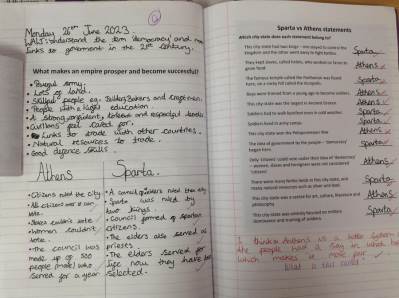 Monday 26th June 2023
WALT: understand the term 'democracy' and
links to government in the 21st Century.
What makes an empire prosper and become successful?
• army.
• Lots of land.
• Skilled people eg. Soldiers, Bakers and Craftmen.
• People with a High education.
• A strong, and respectful leader.
• Civilians feel cared for.
• Links for trade with other countries.
• Natural resources to trade.
• Good defence skills.
Athens
• Citizens ruled the city
• All citizens over 18 can
vote.
• Slaves couldn't vote
• Women couldn't
vote.
• The council was
made up of 500
people (male) who
served for a year.
Sparta.
• A council of elders ruled the city
• Sparta was ruled by
two kings.
• Council formed of Spartan
citizens.
• The elders also served as
priests.
• The elders served for
life once they have been
selected.
Sparta vs Athens statements
Which city state does each statement belong to?
This city state had two kings – one stayed to control the
kingdom and the other went away to fight battles. Sparta
They kept slaves, called helots, who worked on farms to
grow food. Athens
The famous temple called the Parthenon was found
here, on a rocky hill called the Acropolis. Sparta
Boys were trained from a young age to become soldiers. Athens
This city state was the largest in Ancient Greece. Athens
Soldiers had to walk barefoot even in cold weather. Sparta
Soldiers lived in army camps. Sparta
This city state won the Peloponnesian War. Athens
The idea of government by the people – 'democracy'
began here. Sparta
Only 'citizens' could vote under their idea of 'democracy'
– women, slaves and foreigners were not considered
'citizens'. Athens
There were many fertile lands in this city state, and
many natural resources such as silver and lead. Sparta
This city state was a centre for art, culture, literature and
philosophy. Athens
This city state was entirely focused on military
dominance and training of soldiers. Sparta
I think Athens is a better system
the people had a say in what
which makes it more fair